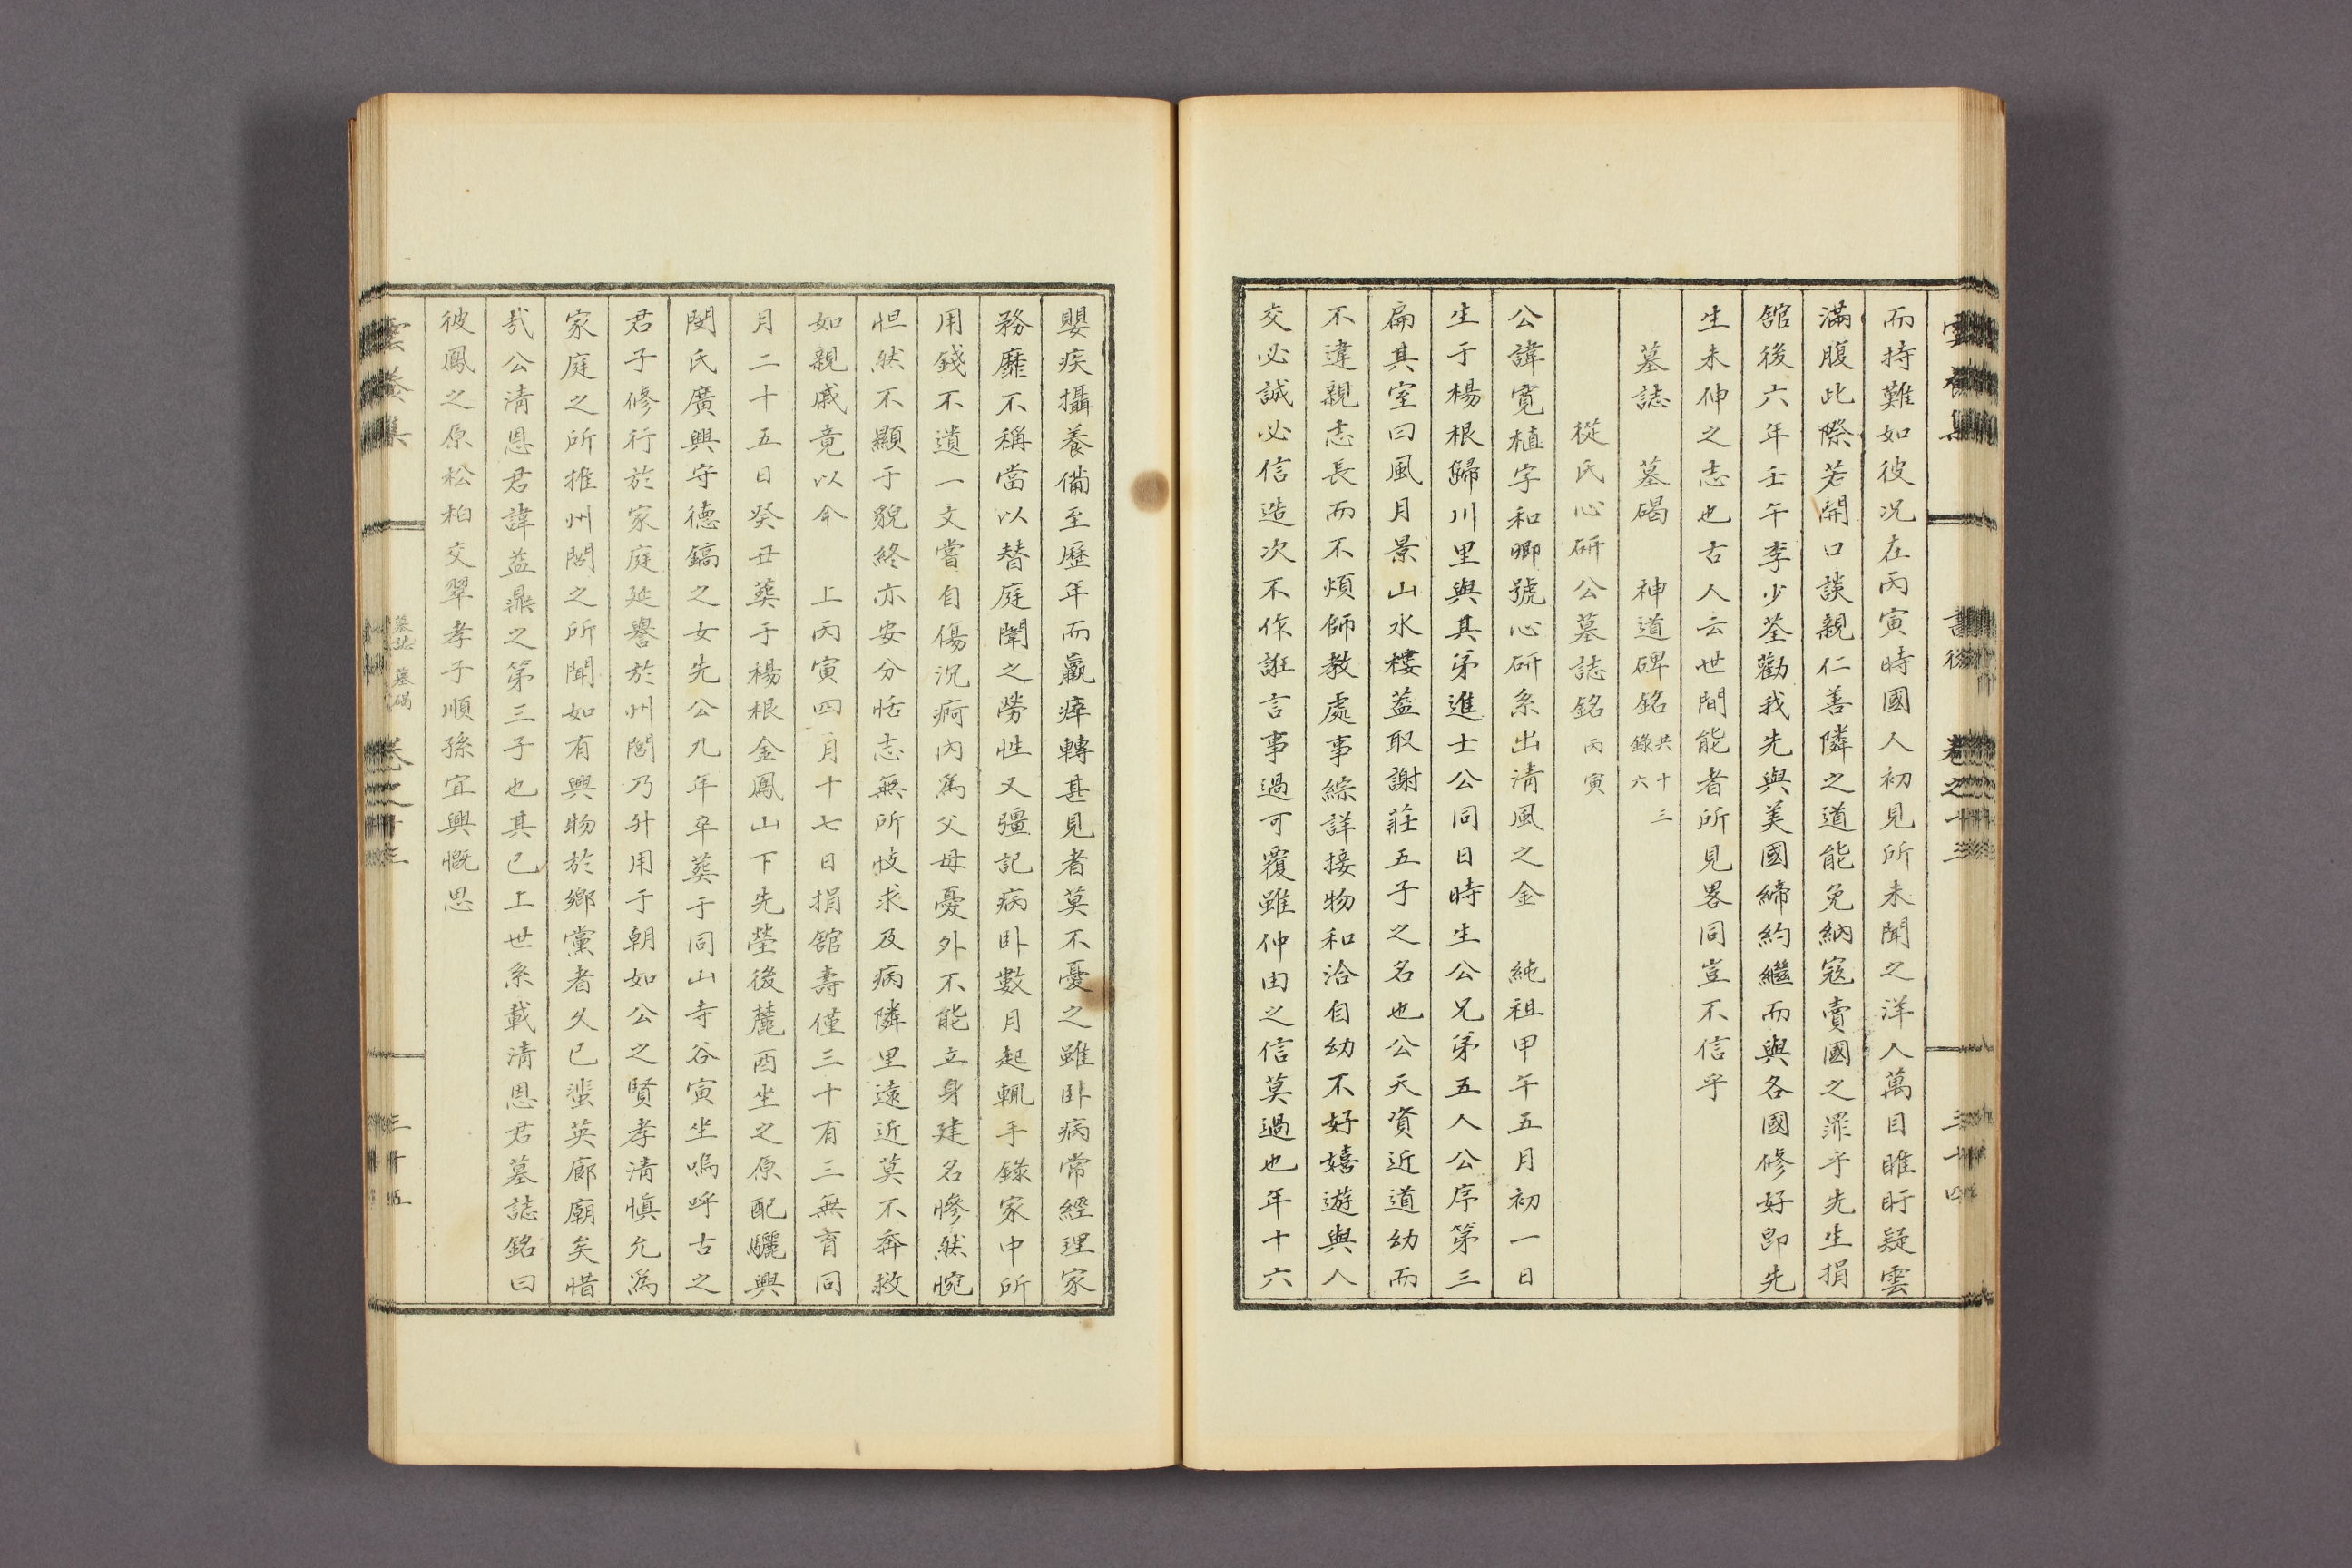 而持難如彼况在丙寅時國人初見所未聞之洋人萬目睢盱疑雲
滿腹此際若開口談親仁善隣之道能免納寇賣國之罪乎先生捐
舘後六年壬午李少荃勸我先與美國締約繼而與各國修好卽先
生未伸之志也古人云世間能者所見畧同豈不信乎
墓誌 墓碣 神道碑銘 共十三
錄六
從氏心研公墓誌銘 丙寅
公諱寬植字和卿號心研系出淸風之金 純祖甲午五月初一日
生于楊根歸川里與其弟進士公同日時生公兄弟五人公序第三
扁其室曰風月景山水樓盖取謝莊五子之名也公天資近道幼而
不違親志長而不煩師教處事綜詳接物和洽自幼不好嬉遊與人
交必誠必信造次不作誑言事過可覆雖仲由之信莫過也年十六
嬰疾攝養備至歷年而羸瘁轉甚見者莫不憂之雖臥病常經理家
務靡不稱當以替庭闈之勞性又彊記病臥數月起輒手錄家中所
用錢不遺一文嘗自傷沉痾內爲父母憂外不能立身建名慘然惋
怛然不顯于貌終亦安分恬志無所忮求及病隣里遠近莫不奔救
如親戚竟以今 上丙寅四月十七日捐舘壽僅三十有三無育同
月二十五日癸丑葬于楊根金鳳山下先塋後麓酉坐之原配驪興
閔氏廣興守德鎬之女先公九年卒葬于同山寺谷寅坐嗚呼古之
君子修行於家庭延譽於州閭乃升用于朝如公之賢孝淸愼允爲
家庭之所推州閭之所聞如有興物於鄉黨者久已蜚英廊廟矣惜
㢤公淸恩君諱益鼎之第三子也其已上世系載淸恩君墓誌銘曰
彼鳳之原松柏交翠孝子順孫宜興慨思
墓誌 墓碣
卷之十三
三十五